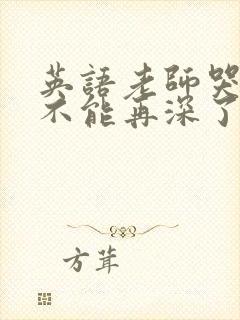 英語老師哭
不能再深了
方茸